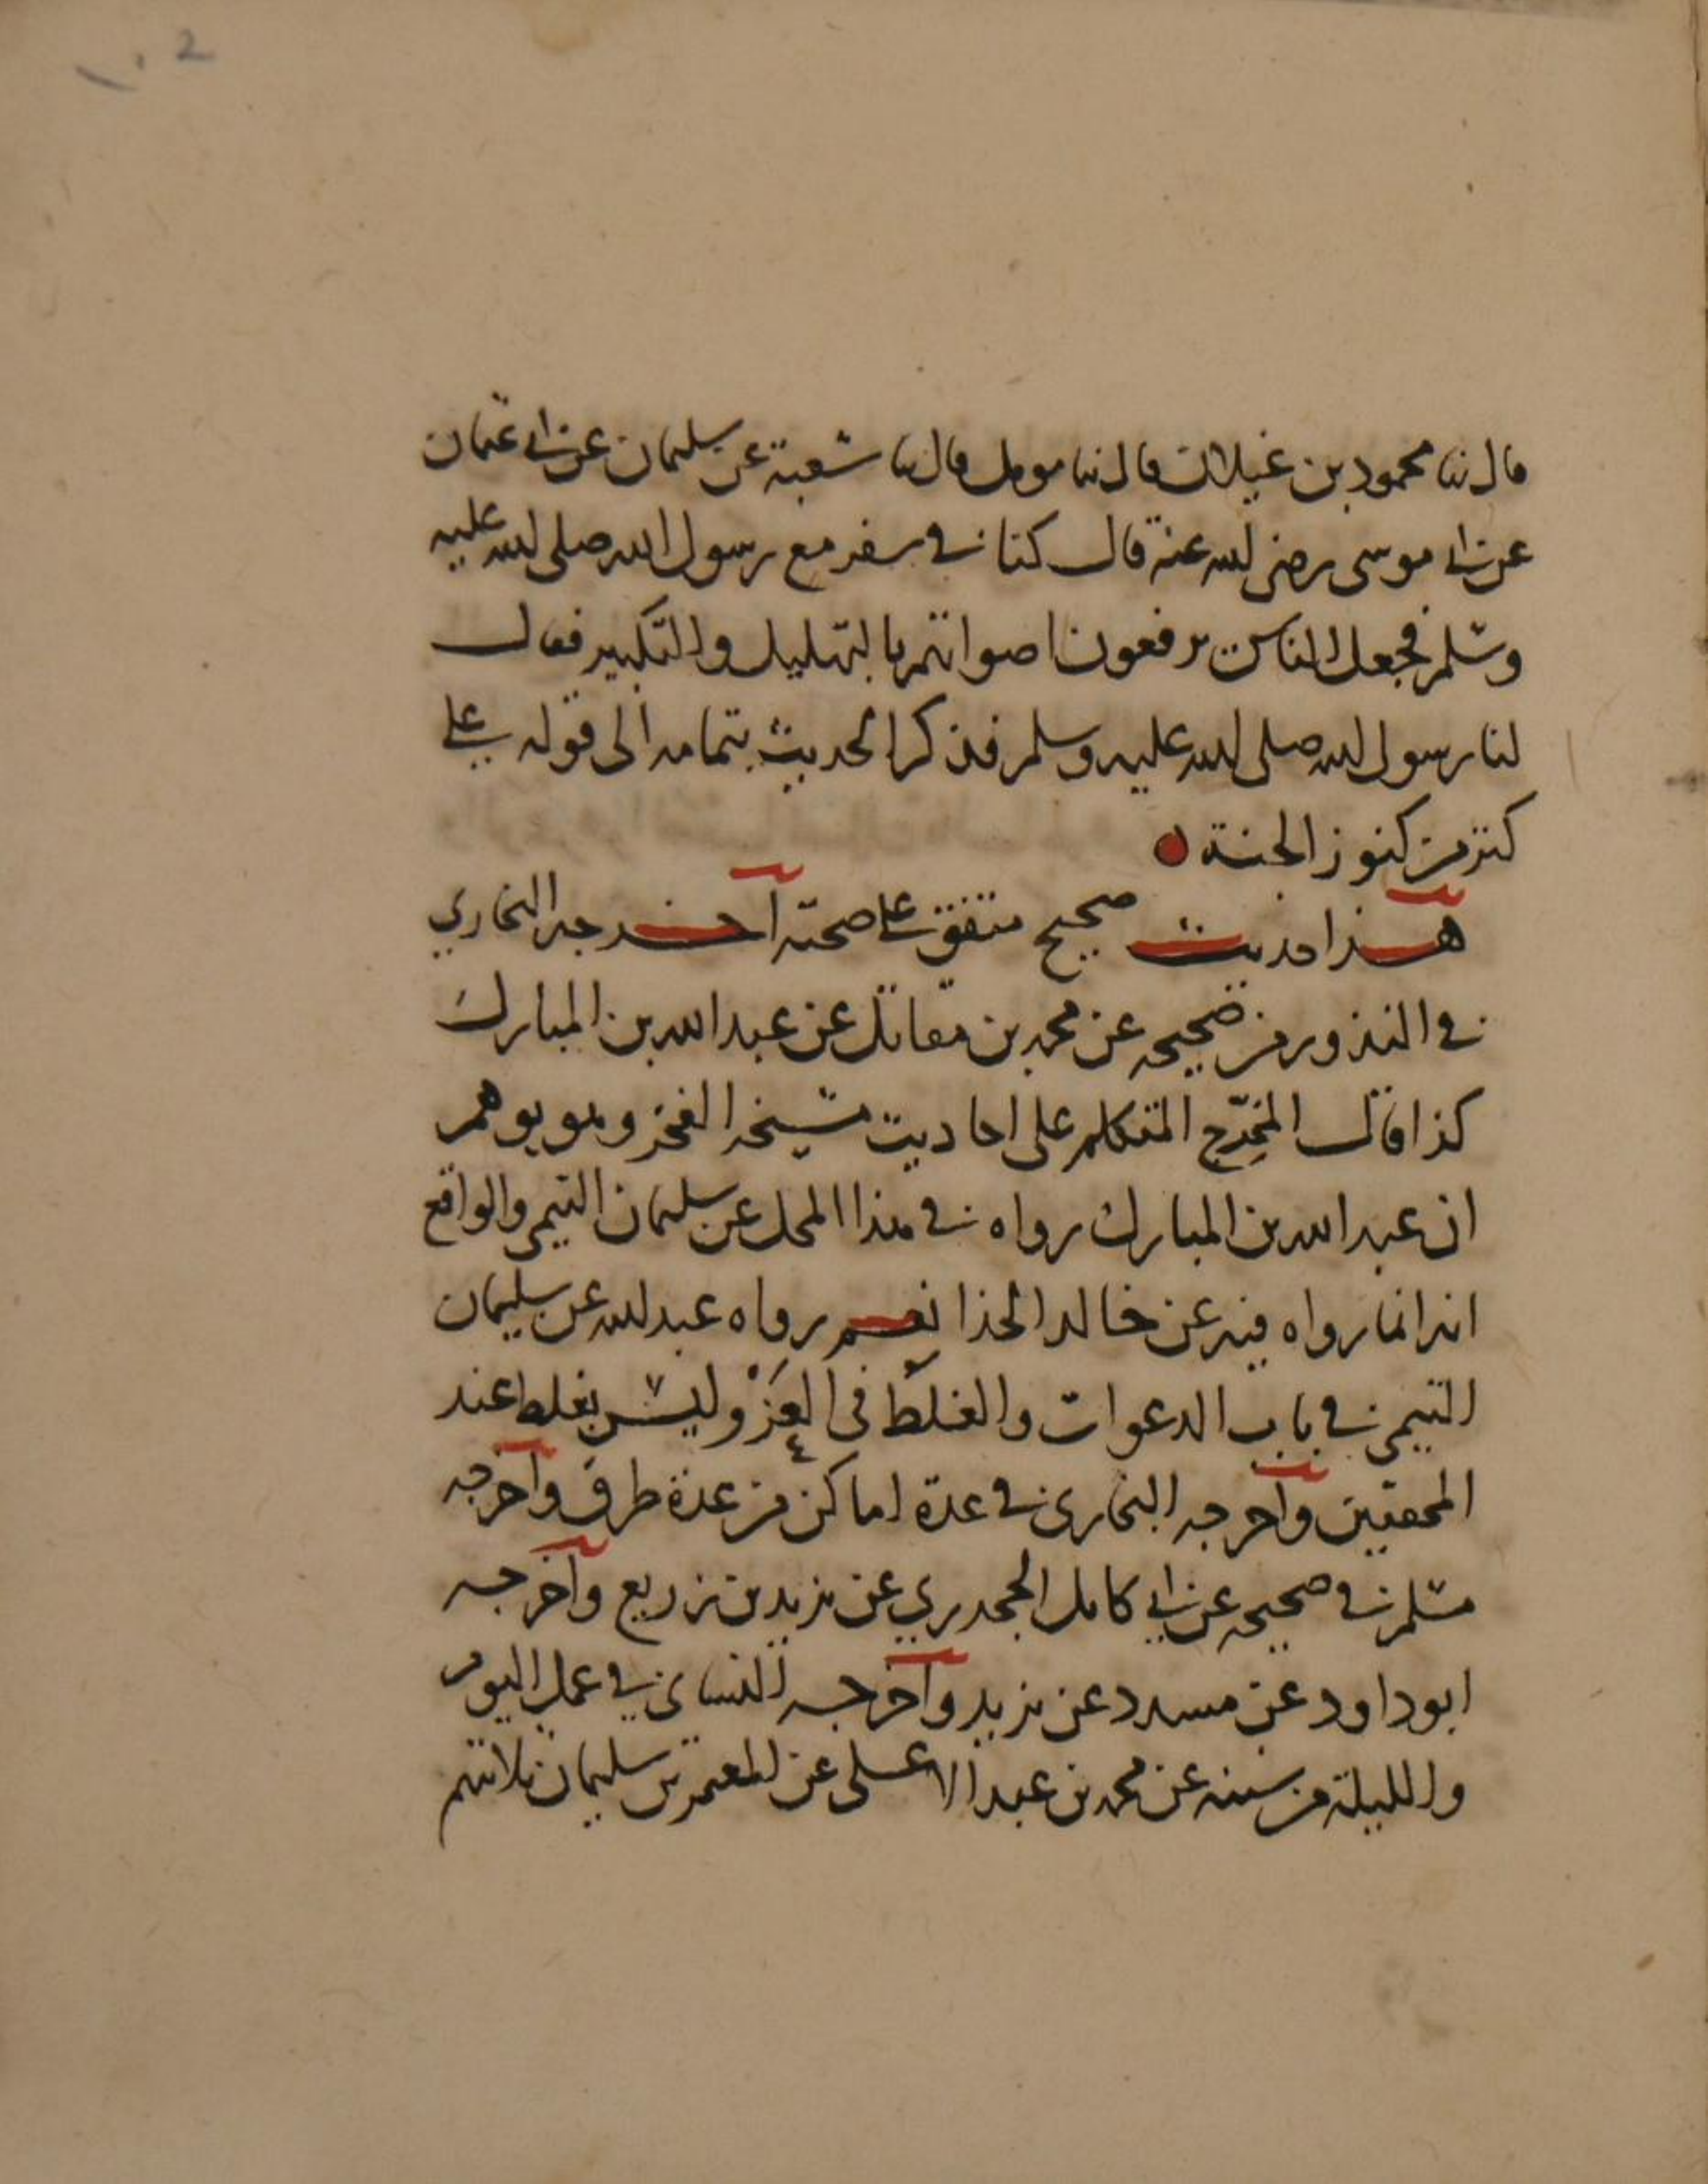 ١٠2
قال ثنا محمود بن غيلان قال ثنا مومل قال ثنا شعبة عن سليمان عن ابي عثمان
عن ابي موسى رضي الله عنه قال كنا في سفر مع رسول الله صلى الله عليه
وسلم فجعل الناس يرفعون اصواتهم بالتهليل والتكبير فقال
لنا رسول الله صلى الله عليه وسلم فذكر الحديث بتمامه الى قوله على
كنز من كنوز الجنة
هذا حديث صحيح متفق على صحته اخرجه البخاري
في النذور من صحيحه عن محمد بن مقاتل عن عبد الله بن المبارك
كذا قال المخرِّج المتكلم على احاديث مشيخة الفخر وهو يوهم
ان عبد الله بن المبارك رواه في هذا المحل عن سليمان التيمي والواقع
انه انما رواه فيه عن خالد الحذا نعم رواه عبد الله عن سليمان
التيمي في باب الدعوات والغلط في العَزْو ليس بغلط عند
المحققين واخرجه البخاري في عدة اماكن من عدة طرق واخرجه
مسلم في صحيحه عن ابي كامل الجحدري عن يزيد بن زريع واخرجه
ابو داود عن مسدد عن يزيد واخرجه النساي في عمل اليوم
والليلة من سننه عن محمد بن عبد الاعلى عن المعتمر بن سليمان ثلاثتهم